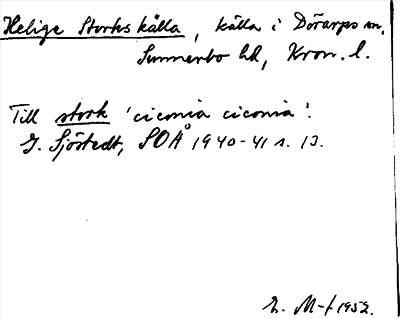 Helige Storks källa, källa i Dörarps sn,
Sunnerbo hd, Kron. l.
Till stork 'ciconia ciconia'.
G. Sjöstedt, SOÅ 1940-41 s. 13.
E. M-f 1952.